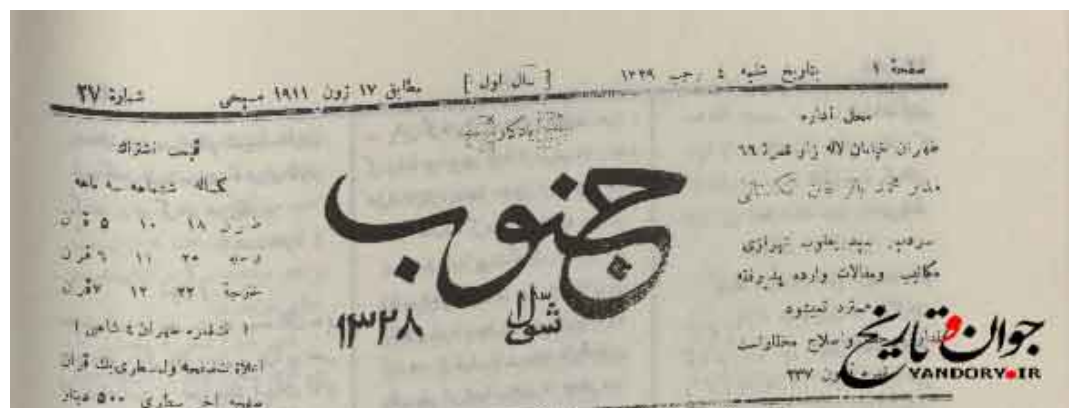 صفحهٔ ۱ بتاریخ شنبه ٤ رجب ۱۳۲۹ [ سال اول ] مطابق ۱۷ ژون ۱۹۱۱ مسیحی شمارهٔ ۲۷
محل اداره
طهران خیابان لاله زار نمرهٔ ٦٩
مدیر محمد باقر خان تنگستانی
سید یعقوب شیرازی
مکاتیب ومقالات وارده پذیرفته
مسترد نمیشود
واصلاح مطالب
۳۳۷
یادگار
جنوب
شوال
۱۳۲۸
قیمت اشتراک
یکساله ششماهه سه ماهه
۱۸ ۱۰ ۵ قران
۲۰ ۱۱ ٦ قران
خارجه ۲۲ ۱۲ ۷ قران
( تک نمره طهران ٤ شاهی )
اعلان صفحه اول سطری یک قران
صفحه آخر سطری ۵۰۰ دینار
جوان و تاریخ
YANDORY.IR